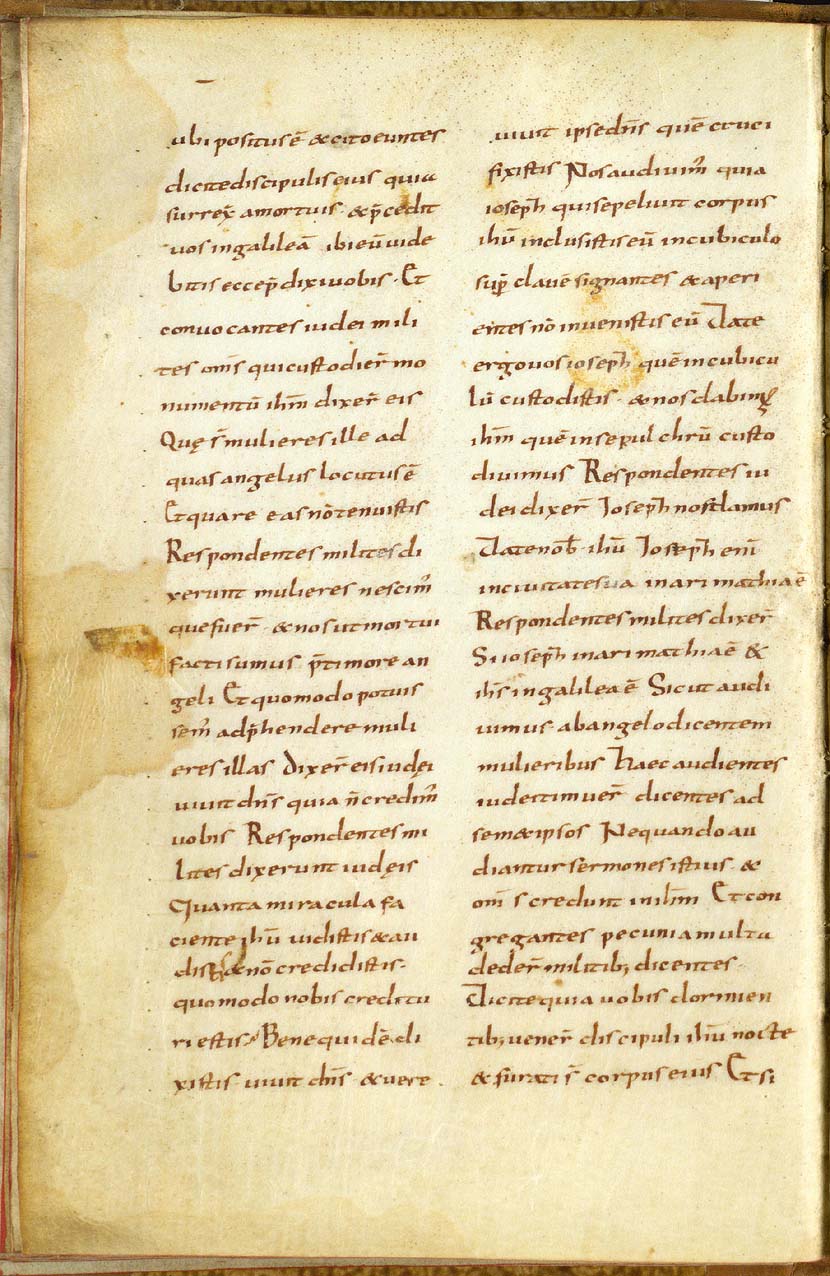 ubi positus ē & cito euntes
dicite discipulis eius quia
surrex̄ amortuis · & p̄cedit
uos ingalileā ibi eū uide
bitis ecce p̄dixi uobis · Et
conuocantes iudei mili
tes om̄s qui custodier̄ mo
numentū ih̄m dixer̄ eis
Quę s̄ mulieres ille ad
quas angelus locutus ē
Et quare eas nō tenuistis
Respondentes milites di
xerunt mulieres nescim̄
que fuer̄ · & nos ut mortui
facti sumus p̄ timore an
geli Et quomodo potuis
sem̄ adp̄hendere muli
eres illas Dixer̄ eis iudęi
uiuit dn̄s quia n̄ credim̄
uobis Respondentes mi
lites dixerunt iudęis
Quanta miracula fa
ciente ih̄u uidistis & au
distis & non credidistis ·
quomodo nobis creditu

ri estis · Bene quidē di
xistis uiuit dn̄s · & uere
uiuit ipse dn̄s quē cruci
fixistis Nos audiuim̄ quia
ioseph̄ qui sepeliuit corpus
ih̄u inclusistis eū incubiculo
sup̄ clauē signantes & aperi
entes nō inuenistis eū Date
ergo uos ioseph̄ quē incubicu
lū custodistis · & nos dabim᷒
ih̄m quē insepulchrū custo
diuimus Respondentes iu
dei dixer̄ Ioseph̄ nos damus
Date nob̄ ih̄u Ioseph̄ eni̅
inciuitate sua inarimathia ē
Respondentes milites dixer̄
Si ioseph̄ inarimathia ē &
ih̄s ingalilea ē Sicut audi
uimus ab angelo dicentem
mulieribus Haec audientes
iudei timuer̄ dicentes ad
sem& ipsos Nequando au
diantur sermones istius · &
om̄s credunt inih̄m Et con
gregantes pecunia multa
deder̄ militib; dicentes ·
Dicite quia uobis dormien
tib; uener̄ discipuli ih̄u nocte
& furati s̄ corpus eius Et si